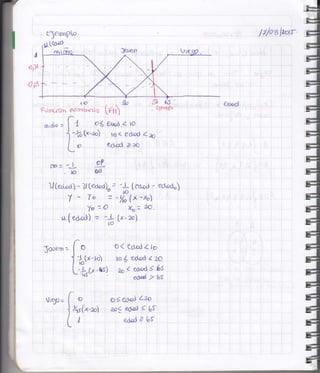 Ejemplo
12/03/2015
μ(edad)
niño Joven Viejo
1
10 20 65 Edad
Ejemplo
Función membresía (FM)
niño = 1 0 ≤ Edad < 10
-1/10 (x-20) 10 ≤ edad < 20
0 edad ≥ 20
m = -1/10
U(edad) - U(edad)₀ = -1/10 (edad - edad₀)
y - y₀ = -1/10 (x - x₀)
y₀ = 0 x₀ = 20
u(edad) = -1/10 (x-20)
Joven = 0 0 < Edad < 10
1/10 (x-10) 10 ≤ edad < 20
-1/45 (x-65) 20 < edad ≤ 65
edad > 65
Viejo = 0 0 ≤ edad < 20
1/45 (x-20) 20 ≤ edad ≤ 65
1 edad ≥ 65